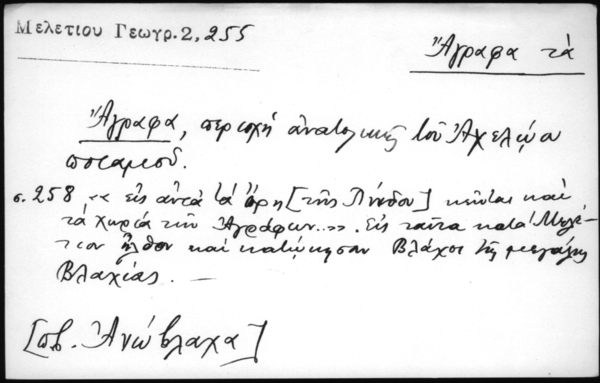 Μελετίου Γεωγρ. 2, 255
Ἄγραφα τά
Ἄγραφα, περιοχὴ ἀνατολικῶς τοῦ Ἀχελῴου
ποταμοῦ.
σ. 258 «εἰς αὐτὰ τὰ ὄρη [τῆς Πίνδου] κεῖνται καὶ
τὰ χωρία τῶν Ἀγράφων...». Εἰς ταῦτα κατὰ Μελέ-
τιον ἦλθον καὶ κατῴκησαν Βλάχοι τῆς μεγάλης
Βλαχίας. —
[πβ. Ἀνώβλαχα]